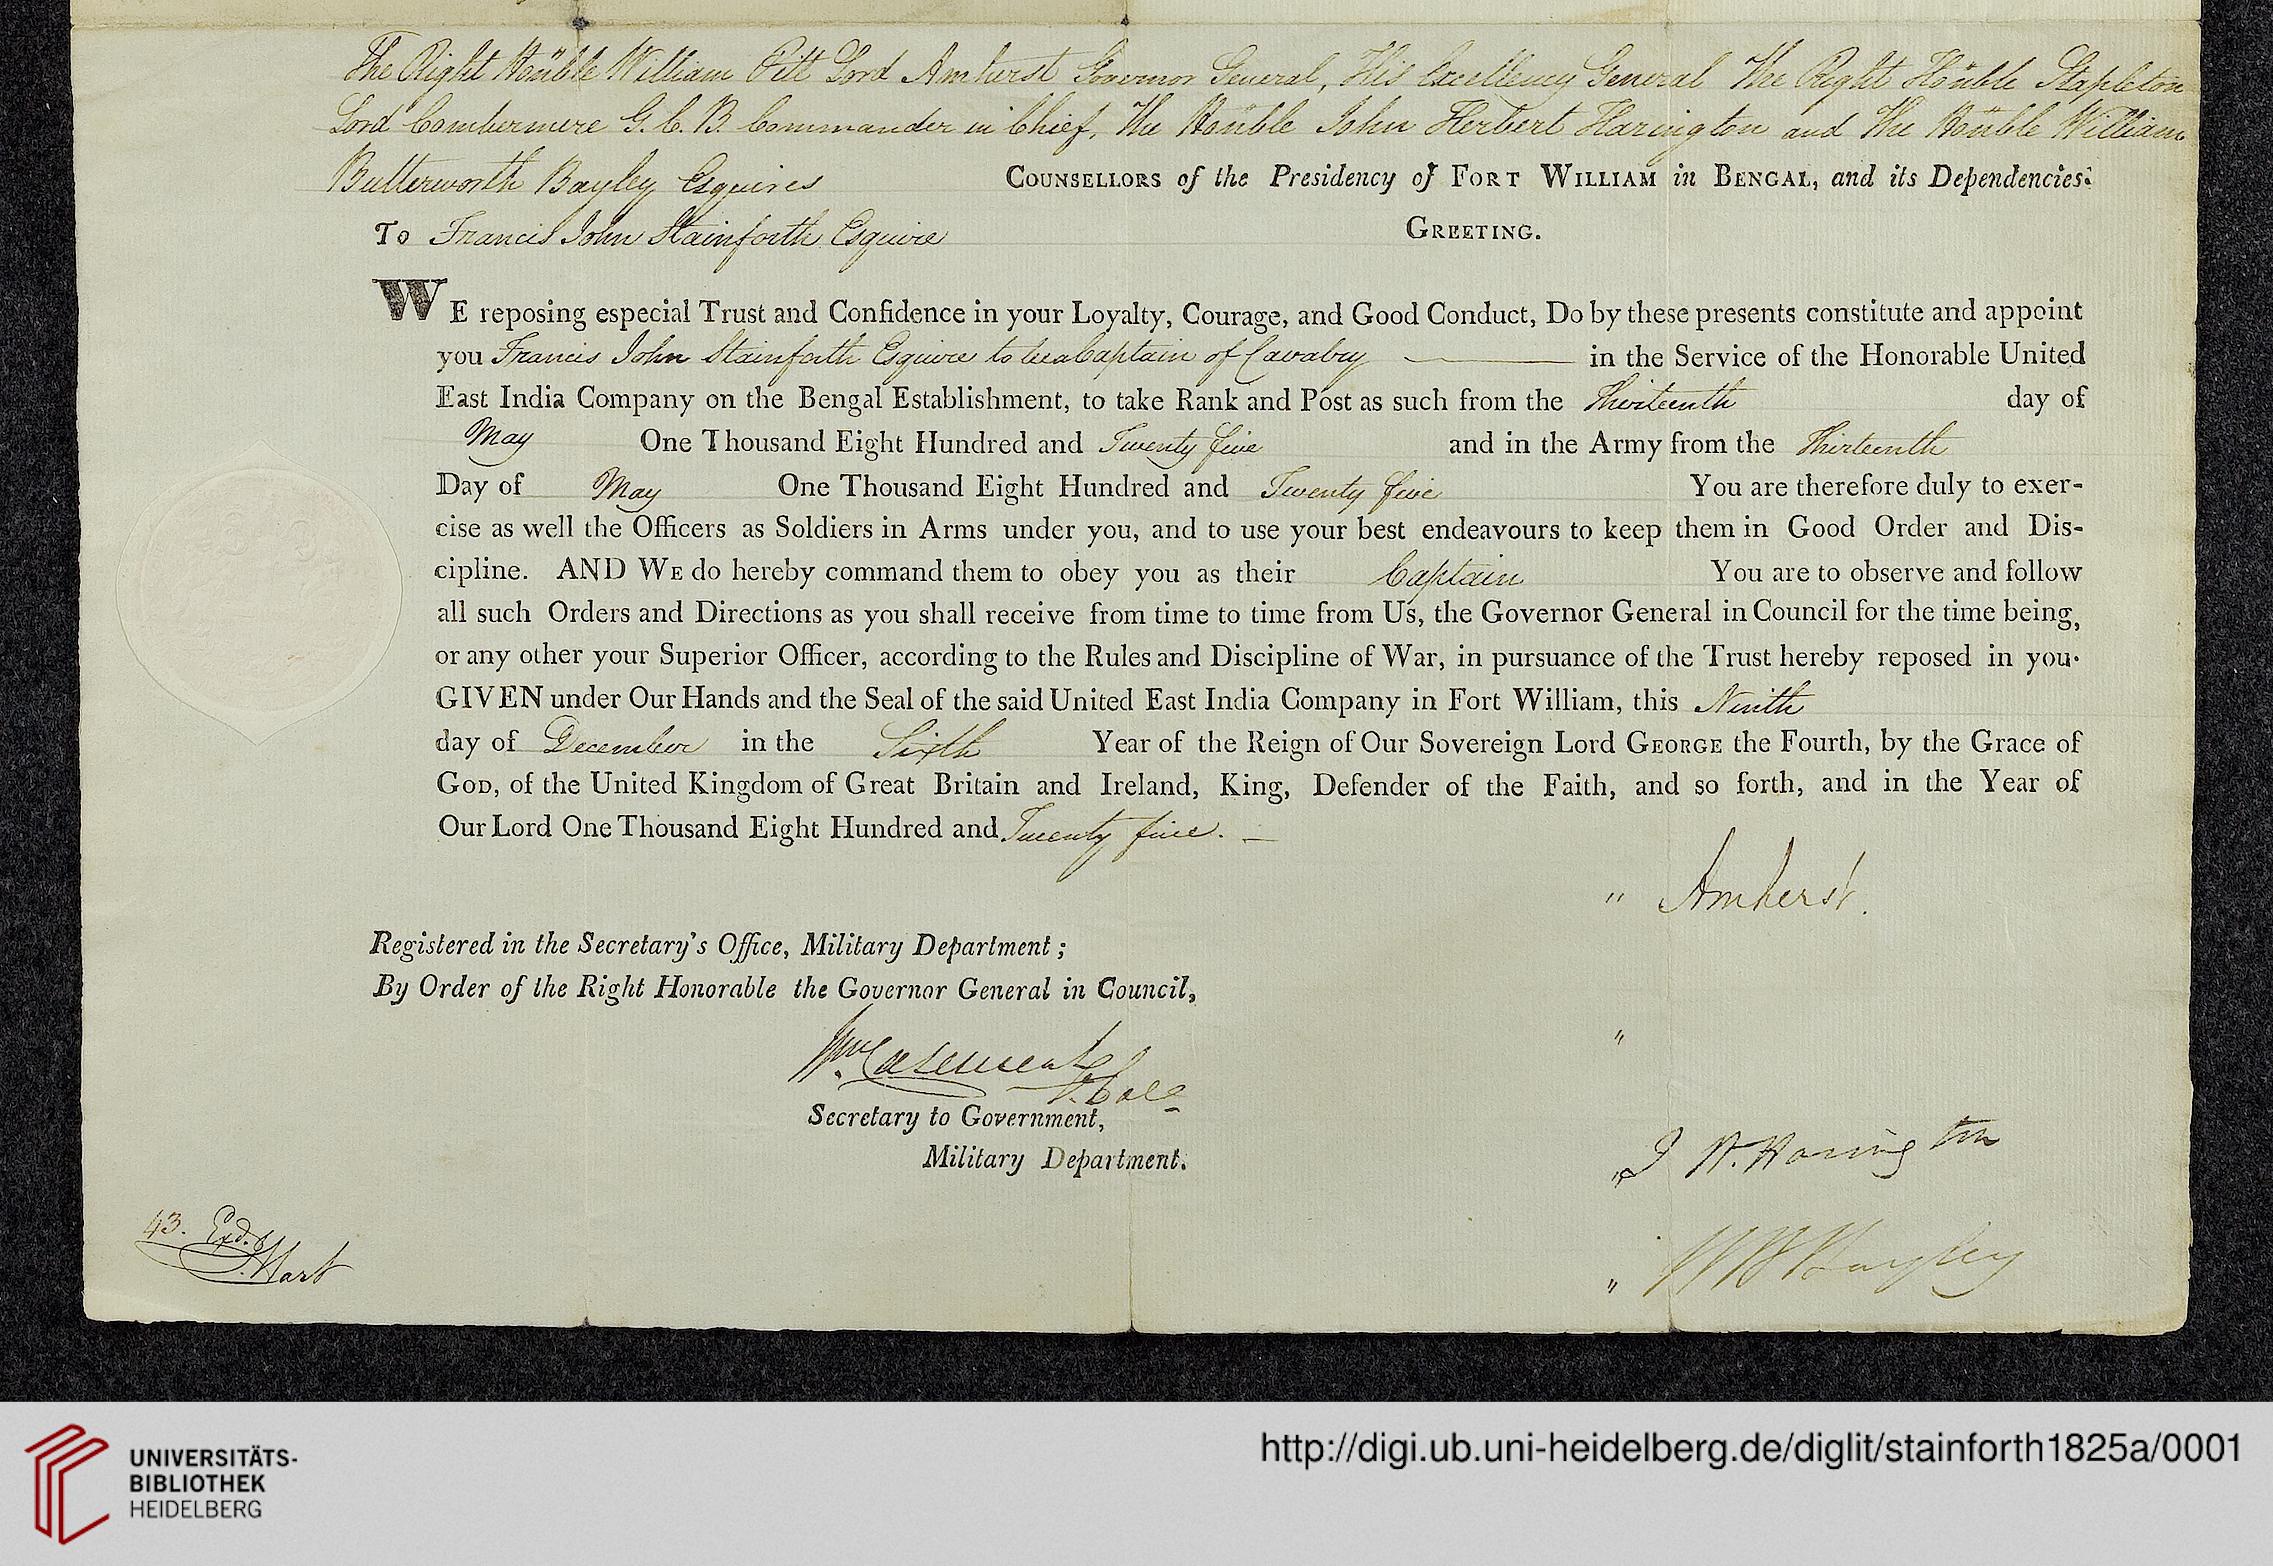 The Right Honble William Pitt Lord Amherst Governor General, His Excellency General The Right Honble Stapleton
Lord Combermere G. C. B. Commander in Chief, The Honble John Herbert Harington and The Honble William
Butterworth Bayley Esquires COUNSELLORS of the Presidency of FORT WILLIAM in BENGAL, and its Dependencies:
To Francis John Stainforth Esquire GREETING.
WE reposing especial Trust and Confidence in your Loyalty, Courage, and Good Conduct, Do by these presents constitute and appoint
you Francis John Stainforth Esquire to be a Captain of Cavalry in the Service of the Honorable United
East India Company on the Bengal Establishment, to take Rank and Post as such from the Thirteenth day of
May One Thousand Eight Hundred and Twenty five and in the Army from the Thirteenth
Day of May One Thousand Eight Hundred and Twenty five You are therefore duly to exer-
cise as well the Officers as Soldiers in Arms under you, and to use your best endeavours to keep them in Good Order and Dis-
cipline. AND WE do hereby command them to obey you as their Captain You are to observe and follow
all such Orders and Directions as you shall receive from time to time from Us, the Governor General in Council for the time being,
or any other your Superior Officer, according to the Rules and Discipline of War, in pursuance of the Trust hereby reposed in you.
GIVEN under Our Hands and the Seal of the said United East India Company in Fort William, this Ninth
day of December in the Sixth Year of the Reign of Our Sovereign Lord GEORGE the Fourth, by the Grace of
GOD, of the United Kingdom of Great Britain and Ireland, King, Defender of the Faith, and so forth, and in the Year of
Our Lord One Thousand Eight Hundred and Twenty five. —
" Amherst.
Registered in the Secretary's Office, Military Department;
By Order of the Right Honorable the Governor General in Council,
"
Wm Casement
Lt. Col.
Secretary to Government,
Military Department.
" J H. Harington
43. Exd. Hart
" W B Bayley
UNIVERSITÄTS-
BIBLIOTHEK
HEIDELBERG
http://digi.ub.uni-heidelberg.de/diglit/stainforth1825a/0001